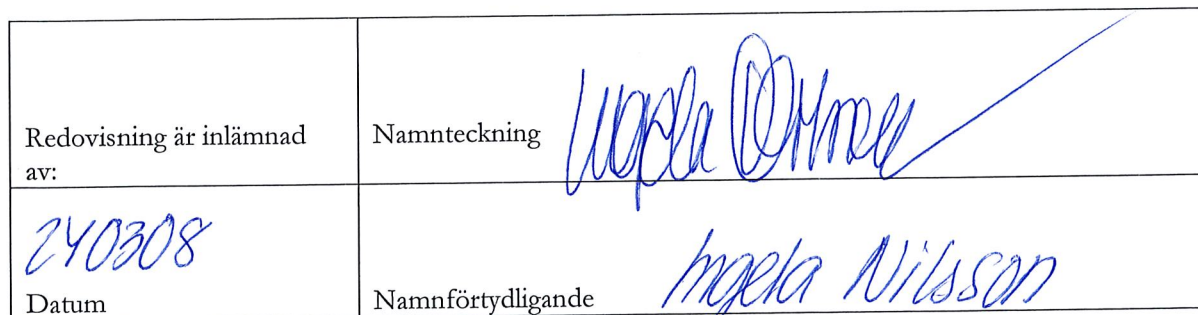 Redovisning är inlämnad
av:
Namnteckning
240308
Datum
Namnförtydligande Ingela Nilsson